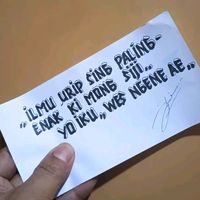 „ILMU URIP SING PALING-
ENAK KI MONG SIJI...
YO IKU „WES NGENE AE„